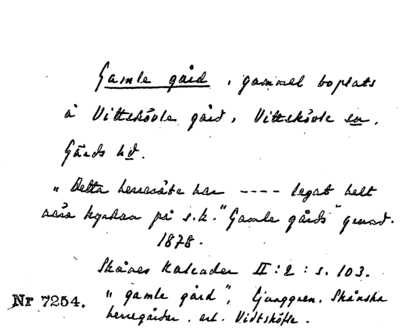 Gamle gård, gammel boplats
å Vittskövle gård, Vittskövle sn,
Gärds hd.
"Detta herresäte har ---- legat helt
nära kyrkan på s.k. "Gamle gårds" grund.
1878.
Skånes Kalender II:2:s. 103.
Nr 7254. "gamle gård", Ljunggren. Skånska
herregårdar, art. Vidtsköfle.